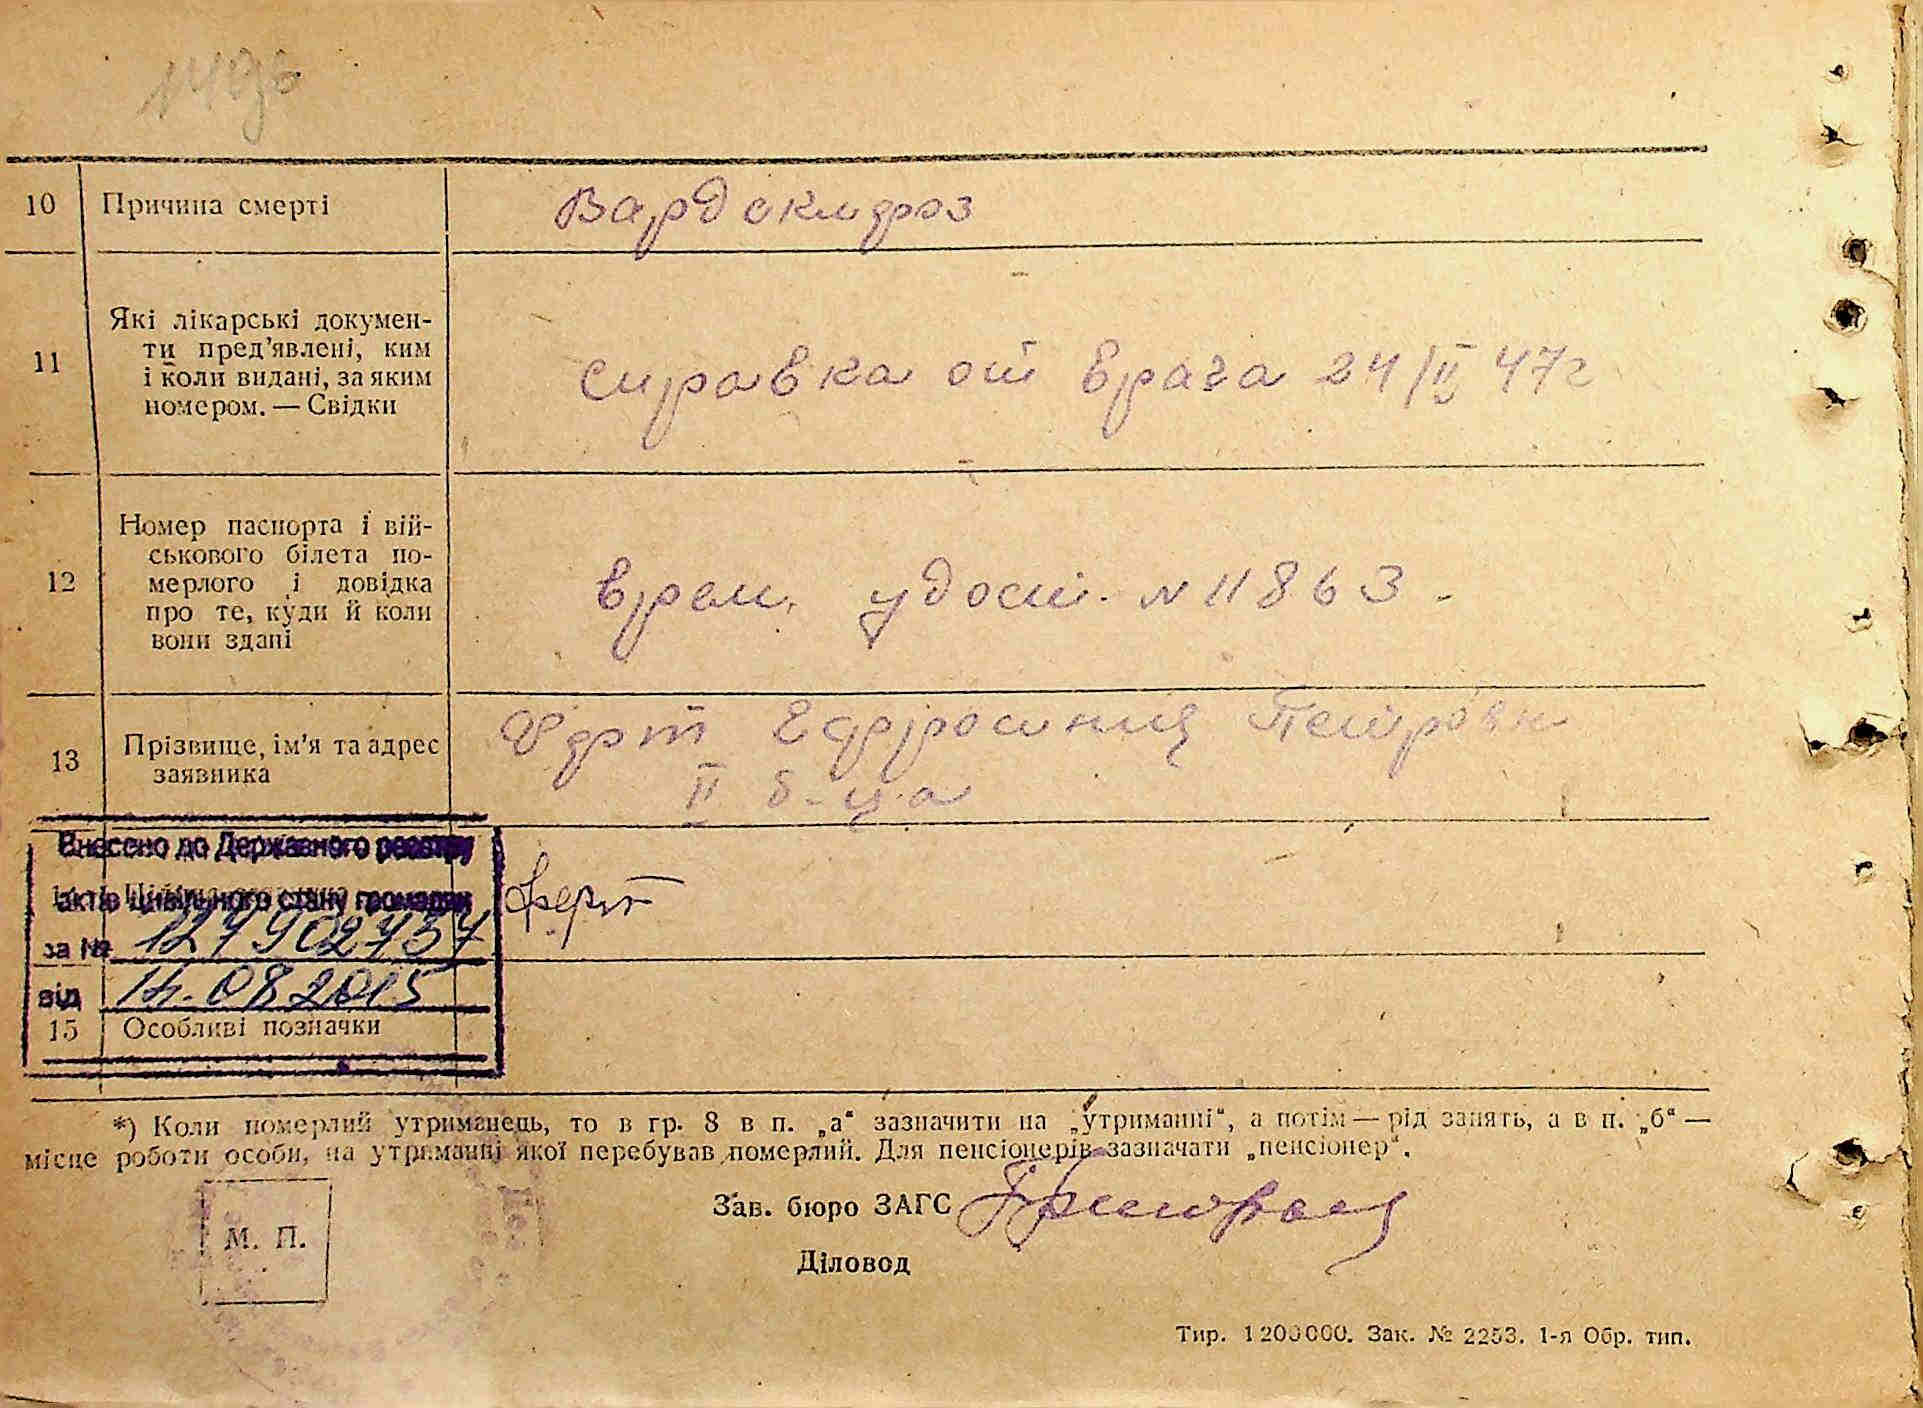 10 Причина смерті
Вардоклироз
11 Які лікарські докумен-
ти пред'явлені, ким
і коли видані, за яким
номером. — Свідки
Справка от врача 24/II 47г
12 Номер паспорта і вій-
ськового білета по-
мерлого і довідка
про те, куди й коли
вони здані
врем. удост. N 11863.
13 Прізвище, ім'я та адрес
заявника
II б-ца
Внесено до Державного реєстру
актів цивільного стану громадян
за № 127902737
від 14.08.2015
15 Особливі позначки
*) Коли померлий утриманець, то в гр. 8 в п. „а“ зазначити на „утриманні“, а потім — рід занять, а в п. „б“ —
місце роботи особи, на утриманні якої перебував померлий. Для пенсіонерів зазначати „пенсіонер“.
Зав. бюро ЗАГС
М. П.
Діловод
Тир. 1200000. Зак. № 2253. 1-я Обр. тип.